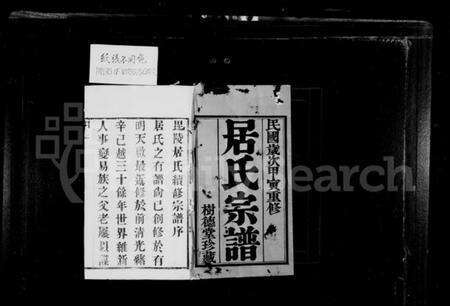 紙張不同色
民國歲次甲寅重修
居氏宗譜
樹德堂珍藏
毘陵居氏續修宗譜序
居氏之有譜尙已創修於有
明天啟最後修於前清光緒
辛已越三十餘年世界維新
人事變易族之父老屢以譜